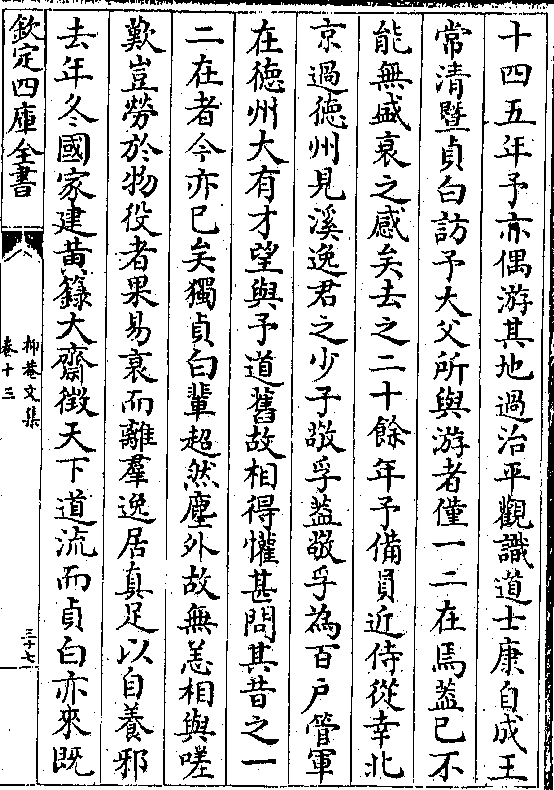 十四五年予亦偶游其地過治平觀識道士康自成王
常清暨貞白訪予大父所與游者僅一二在焉蓋已不
能無盛衰之感矣去之二十餘年予備員近侍從幸北
京過徳州見溪逸君之少子敬孚蓋敬孚為百戶管軍
在徳州大有才望與予道舊故相得懽甚問其昔之一
二在者今亦已矣獨貞白輩超然塵外故無恙相與嗟
歎豈勞於物役者果易衰而離羣逸居真足以自養邪
去年冬國家建黃籙大齋徴天下道流而貞白亦來既
欽定四庫全書
抑菴文集
卷十三
三十七